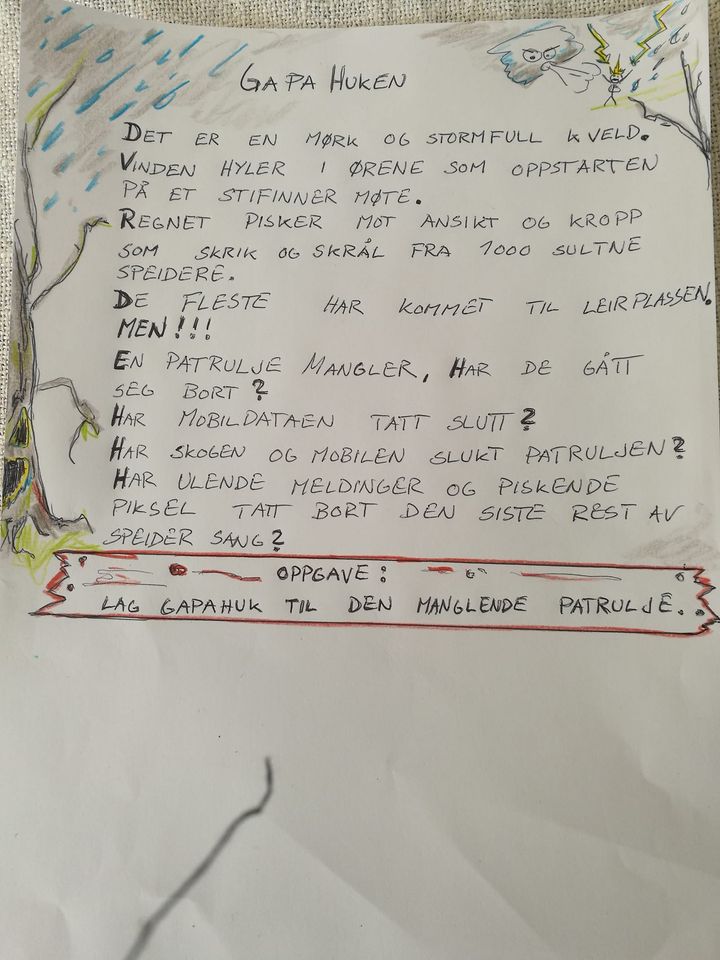 GAPA HUKEN
DET ER EN MØRK OG STORMFULL KVELD.
VINDEN HYLER I ØRENE SOM OPPSTARTEN
PÅ ET STIFINNER MØTE.
REGNET PISKER MOT ANSIKT OG KROPP
SOM SKRIK OG SKRÅL FRA 1000 SULTNE
SPEIDERE.
DE FLESTE HAR KOMMET TIL LEIRPLASSEN.
MEN!!!
EN PATRULJE MANGLER, HAR DE GÅTT
SEG BORT?
HAR MOBILDATAEN TATT SLUTT?
HAR SKOGEN OG MOBILEN SLUKT PATRULJEN?
HAR ULENDE MELDINGER OG PISKENDE
PIKSEL TATT BORT DEN SISTE REST AV
SPEIDER SANG?
OPPGAVE:
LAG GAPAHUK TIL DEN MANGLENDE PATRULJE.